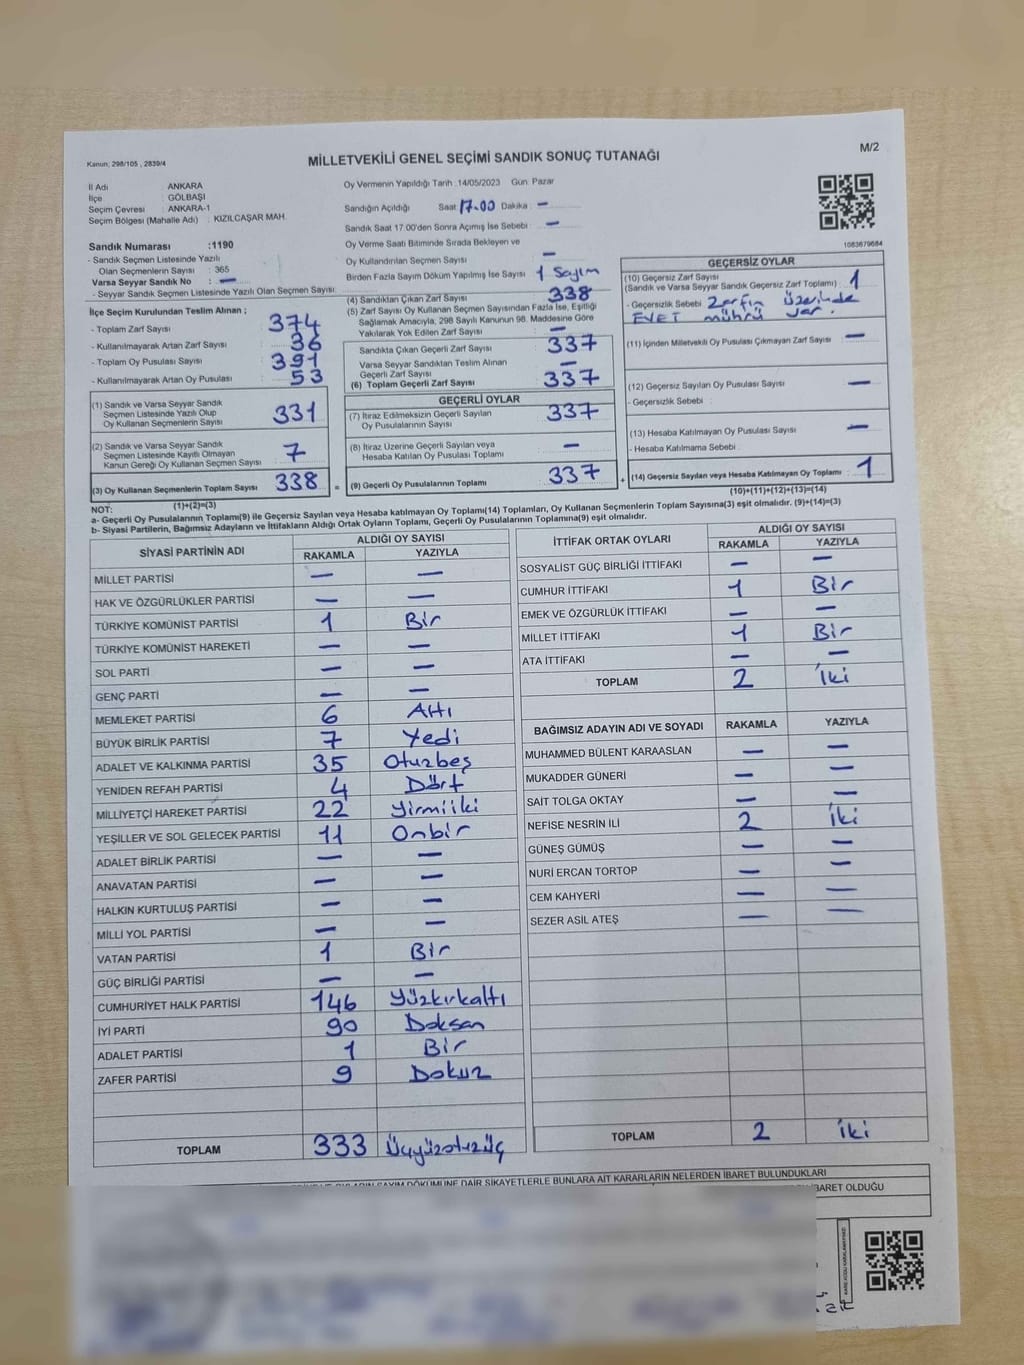 Kanun; 298/105 , 2839/4
MİLLETVEKİLİ GENEL SEÇİMİ SANDIK SONUÇ TUTANAĞI
M/2
İl Adı : ANKARA
İlçe : GÖLBAŞI
Seçim Çevresi : ANKARA-1
Seçim Bölgesi (Mahalle Adı) : KIZILCAŞAR MAH.
Sandık Numarası :1190
- Sandık Seçmen Listesinde Yazılı
Olan Seçmenlerin Sayısı : 365
Varsa Seyyar Sandık No : —
- Seyyar Sandık Seçmen Listesinde Yazılı Olan Seçmen Sayısı:
Oy Vermenin Yapıldığı Tarih :14/05/2023 Gün: Pazar
Sandığın Açıldığı Saat 17.00 Dakika : —
Sandık Saat 17.00'den Sonra Açımış İse Sebebi : —
Oy Verme Saati Bitiminde Sırada Bekleyen ve
Oy Kullandırılan Seçmen Sayısı : —
Birden Fazla Sayım Döküm Yapılmış İse Sayısı : 1 Sayım
1083679684
İlçe Seçim Kurulundan Teslim Alınan ;
- Toplam Zarf Sayısı : 374
- Kullanılmayarak Artan Zarf Sayısı : 36
- Toplam Oy Pusulası Sayısı : 391
- Kullanılmayarak Artan Oy Pusulası : 53
(1) Sandık ve Varsa Seyyar Sandık
Seçmen Listesinde Yazılı Olup
Oy Kullanan Seçmenlerin Sayısı : 331
(2) Sandık ve Varsa Seyyar Sandık
Seçmen Listesinde Kayıtlı Olmayan
Kanun Gereği Oy Kullanan Seçmen Sayısı : 7
(3) Oy Kullanan Seçmenlerin Toplam Sayısı : 338
(1)+(2)=(3)
(4) Sandıktan Çıkan Zarf Sayısı : 338
(5) Zarf Sayısı Oy Kullanan Seçmen Sayısından Fazla İse, Eşitliği
Sağlamak Amacıyla, 298 Sayılı Kanunun 98. Maddesine Göre
Yakılarak Yok Edilen Zarf Sayısı : —
Sandıkta Çıkan Geçerli Zarf Sayısı : 337
Varsa Seyyar Sandıktan Teslim Alınan
Geçerli Zarf Sayısı : —
(6) Toplam Geçerli Zarf Sayısı : 337
GEÇERLİ OYLAR
(7) İtiraz Edilmeksizin Geçerli Sayılan
Oy Pusulalarının Sayısı : 337
(8) İtiraz Üzerine Geçerli Sayılan veya
Hesaba Katılan Oy Pusulası Toplamı : —
= (9) Geçerli Oy Pusulalarının Toplamı : 337
GEÇERSİZ OYLAR
(10) Geçersiz Zarf Sayısı
(Sandık ve Varsa Seyyar Sandık Geçersiz Zarf Toplamı) : 1
- Geçersizlik Sebebi : Zarfın üzerinde
EVET mührü var.
(11) İçinden Milletvekili Oy Pusulası Çıkmayan Zarf Sayısı : —
(12) Geçersiz Sayılan Oy Pusulası Sayısı : —
- Geçersizlik Sebebi :
(13) Hesaba Katılmayan Oy Pusulası Sayısı : —
- Hesaba Katılmama Sebebi :
+ (14) Geçersiz Sayılan veya Hesaba Katılmayan Oy Toplamı : 1
(10)+(11)+(12)+(13)=(14)
NOT:
a- Geçerli Oy Pusulalarının Toplamı(9) ile Geçersiz Sayılan veya Hesaba katılmayan Oy Toplamı(14) Toplamları, Oy Kullanan Seçmenlerin Toplam Sayısına(3) eşit olmalıdır. (9)+(14)=(3)
b- Siyasi Partilerin, Bağımsız Adayların ve İttifakların Aldığı Ortak Oyların Toplamı, Geçerli Oy Pusulalarının Toplamına(9) eşit olmalıdır.
SİYASİ PARTİNİN ADI ALDIĞI OY SAYISI
RAKAMLA YAZIYLA
MİLLET PARTİSİ — —
HAK VE ÖZGÜRLÜKLER PARTİSİ — —
TÜRKİYE KOMÜNİST PARTİSİ 1 Bir
TÜRKİYE KOMÜNİST HAREKETİ — —
SOL PARTİ — —
GENÇ PARTİ — —
MEMLEKET PARTİSİ 6 Altı
BÜYÜK BİRLİK PARTİSİ 7 Yedi
ADALET VE KALKINMA PARTİSİ 35 Otuzbeş
YENİDEN REFAH PARTİSİ 4 Dört
MİLLİYETÇİ HAREKET PARTİSİ 22 Yirmiiki
YEŞİLLER VE SOL GELECEK PARTİSİ 11 Onbir
ADALET BİRLİK PARTİSİ — —
ANAVATAN PARTİSİ — —
HALKIN KURTULUŞ PARTİSİ — —
MİLLİ YOL PARTİSİ — —
VATAN PARTİSİ 1 Bir
GÜÇ BİRLİĞİ PARTİSİ — —
CUMHURİYET HALK PARTİSİ 146 Yüzkırkaltı
İYİ PARTİ 90 Doksan
ADALET PARTİSİ 1 Bir
ZAFER PARTİSİ 9 Dokuz
TOPLAM 333 Üçyüzotuzüç
İTTİFAK ORTAK OYLARI ALDIĞI OY SAYISI
RAKAMLA YAZIYLA
SOSYALİST GÜÇ BİRLİĞİ İTTİFAKI — —
CUMHUR İTTİFAKI 1 Bir
EMEK VE ÖZGÜRLÜK İTTİFAKI — —
MİLLET İTTİFAKI 1 Bir
ATA İTTİFAKI — —
TOPLAM 2 İki
BAĞIMSIZ ADAYIN ADI VE SOYADI RAKAMLA YAZIYLA
MUHAMMED BÜLENT KARAASLAN — —
MUKADDER GÜNERİ — —
SAİT TOLGA OKTAY — —
NEFİSE NESRİN İLİ 2 İki
GÜNEŞ GÜMÜŞ — —
NURİ ERCAN TORTOP — —
CEM KAHYERİ — —
SEZER ASİL ATEŞ — —
TOPLAM 2 İki
SAYIM DÖKÜMÜNE DAİR ŞİKAYETLERLE BUNLARA AİT KARARLARIN NELERDEN İBARET BULUNDUKLARI
İBARET OLDUĞU